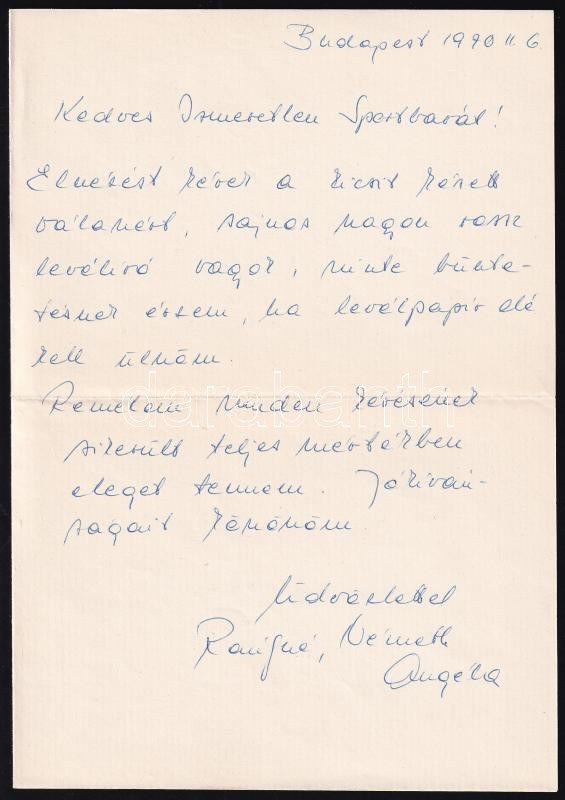 Budapest 1990 II. 6.
Kedves Ismeretlen Sportbarát!
Elnézést kérek a kicsit késett
válaszért, sajnos nagyon rossz
levélíró vagyok, szinte bünte-
tésnek érzem, ha levélpapír elé
kell ülnöm.
Remélem minden kérésének
sikerült teljes mértékben
eleget tennem. Jókíván-
ságait köszönöm.
Üdvözlettel
Németh
Angéla
darabanth